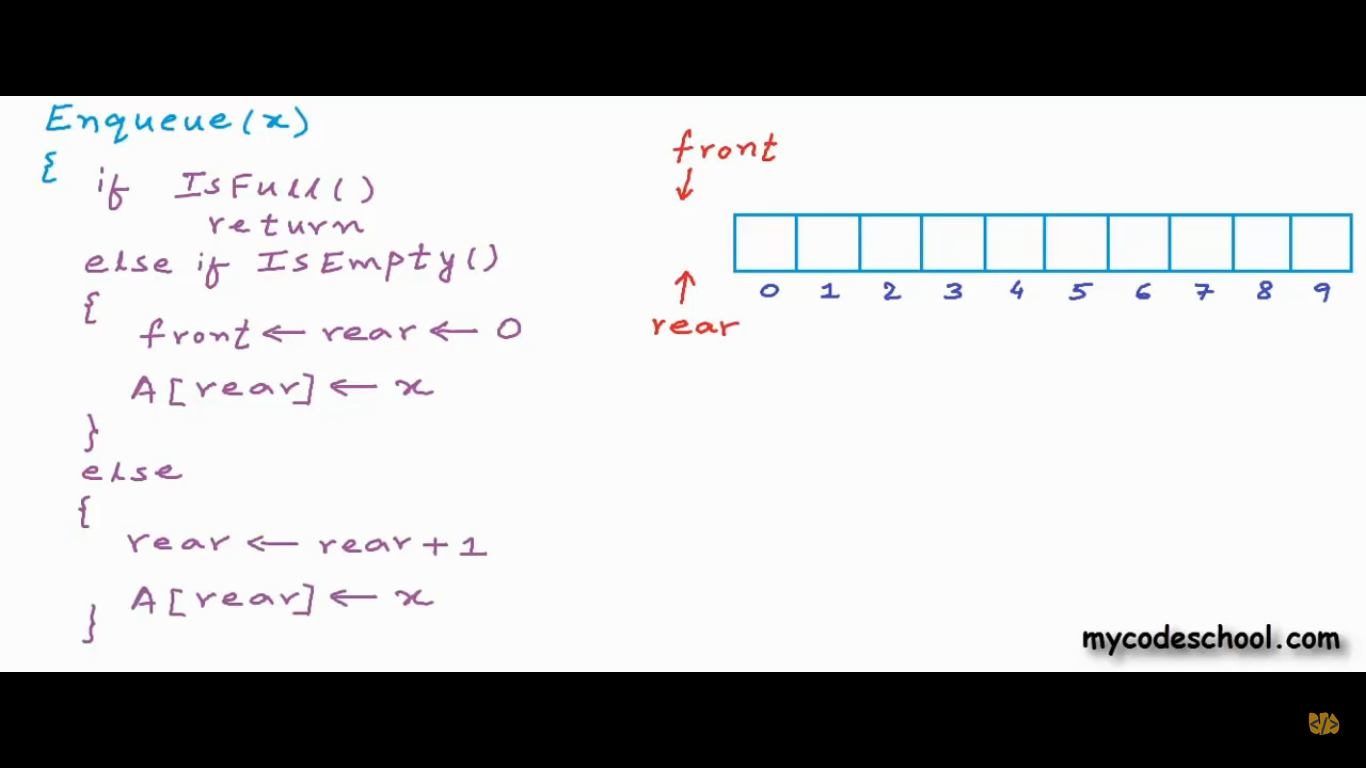 Enqueue(x)
{
if IsFull()
return
else if IsEmpty()
{
front ← rear ← 0
A[rear] ← x
}
else
{
rear ← rear + 1
A[rear] ← x
}
front
↓
↑
0 1 2 3 4 5 6 7 8 9
rear
mycodeschool.com